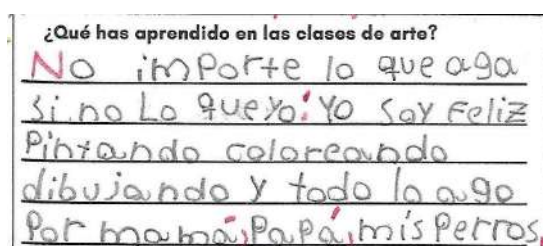 ¿Qué has aprendido en las clases de arte?
No importe lo que aga
si.no Lo que yo: Yo Soy Feliz
Pintando coloreando
dibujando y todo lo ago
Por mamá, Papá, mis Perros,